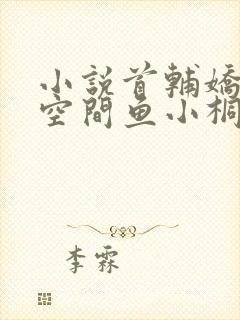 小說首輔嬌
空間魚小桐
李霖